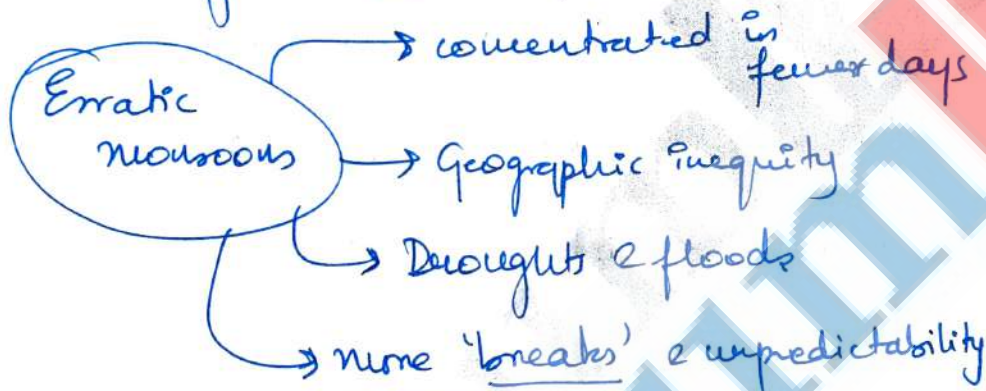 Erratic
monsoons
concentrated in
fewer days
Geographic inequity
Droughts & floods
more 'breaks' & unpredictability